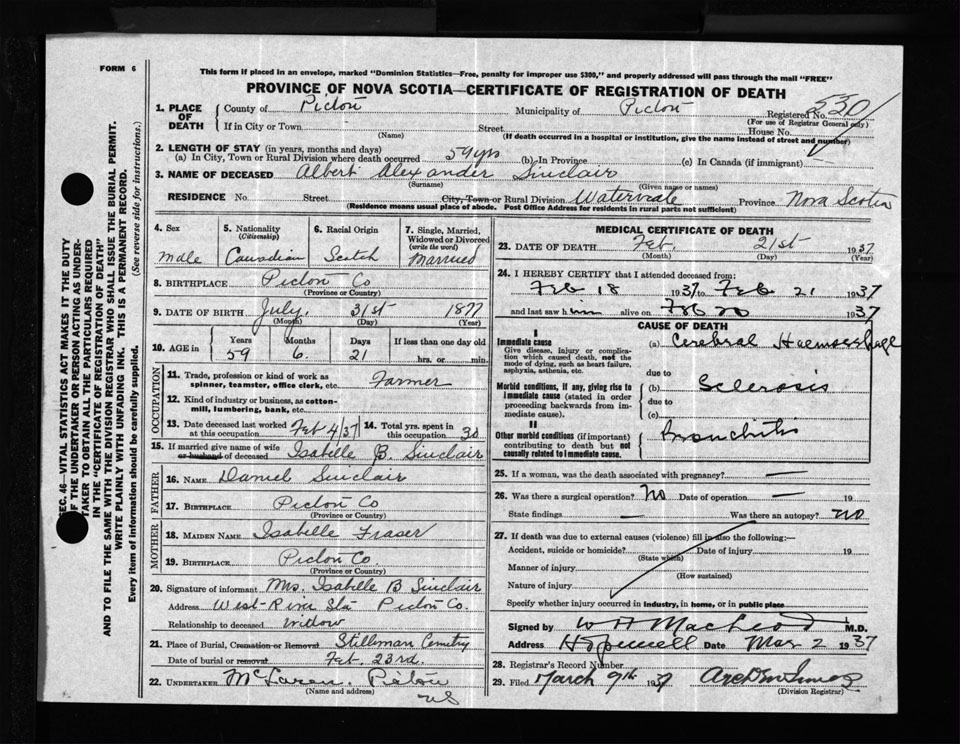 FORM 6
This form if placed in an envelope, marked "Dominion Statistics—Free, penalty for improper use $300," and properly addressed will pass through the mail "FREE"
PROVINCE OF NOVA SCOTIA—CERTIFICATE OF REGISTRATION OF DEATH
1. PLACE OF DEATH County of Pictou Municipality of Pictou Registered No. 530
(For use of Registrar General only)
If in City or Town Street House No.
(Name) (If death occurred in a hospital or institution, give the name instead of street and number)
2. LENGTH OF STAY (in years, months and days)
(a) In City, Town or Rural Division where death occurred 59 yrs (b) In Province (c) In Canada (if immigrant)
3. NAME OF DECEASED Albert Alexander Sinclair
(Surname) (Given name or names)
RESIDENCE No. Street City, Town or Rural Division Watervale Province Nova Scotia
(Residence means usual place of abode. Post Office Address for residents in rural parts not sufficient)
4. Sex
male
5. Nationality
(Citizenship)
Canadian
6. Racial Origin
Scotch
7. Single, Married, Widowed or Divorced
(write the word)
Married
8. BIRTHPLACE Pictou Co
(Province or Country)
9. DATE OF BIRTH July, 31st 1877
(Month) (Day) (Year)
10. AGE in Years Months Days If less than one day old
59 6. 21 hrs. or min.
OCCUPATION
11. Trade, profession or kind of work as spinner, teamster, office clerk, etc. Farmer
12. Kind of industry or business, as cotton-mill, lumbering, bank, etc.
13. Date deceased last worked at this occupation Feb 4/37 14. Total yrs. spent in this occupation 30
15. If married give name of wife or husband of deceased Isabelle B. Sinclair
FATHER
16. NAME Daniel Sinclair
17. BIRTHPLACE Pictou Co
(Province or Country)
MOTHER
18. MAIDEN NAME Isabelle Fraser
19. BIRTHPLACE Pictou Co.
(Province or Country)
20. Signature of informant Mrs. Isabelle B Sinclair
Address West River Sta Pictou Co.
Relationship to deceased widow
21. Place of Burial, Cremation or Removal Stillman Cemetry
Date of burial or removal Feb. 23rd.
22. UNDERTAKER McLaren, Pictou
NS
(Name and address)
MEDICAL CERTIFICATE OF DEATH
23. DATE OF DEATH Feb. 21st 1937
(Month) (Day) (Year)
24. I HEREBY CERTIFY that I attended deceased from:
Feb 18 1937 to Feb 21 1937
and last saw him alive on Feb 20 1937
CAUSE OF DEATH
I
Immediate cause (a) Cerebral Haemorrhage
Give disease, injury or complication which caused death, not the mode of dying, such as heart failure, asphyxia, asthenia, etc.
due to
Morbid conditions, if any, giving rise to immediate cause (stated in order proceeding backwards from immediate cause).
(b) Sclerosis
due to
(c)
II
Other morbid conditions (if important) contributing to death but not causally related to immediate cause.
Bronchitis
25. If a woman, was the death associated with pregnancy? —
26. Was there a surgical operation? No Date of operation — 19
State findings — Was there an autopsy? No
27. If death was due to external causes (violence) fill in also the following:—
Accident, suicide or homicide? Date of injury 19
(State which)
Manner of injury
(How sustained)
Nature of injury
Specify whether injury occurred in industry, in home, or in public place
Signed by W A MacLeod M.D.
Address Hopewell Date Mar 2 1937
28. Registrar's Record Number
29. Filed March 9th 1937
(Division Registrar)
SEC. 46—VITAL STATISTICS ACT MAKES IT THE DUTY
OF THE UNDERTAKER OR PERSON ACTING AS UNDER-
TAKER TO OBTAIN ALL THE PARTICULARS REQUIRED
IN THE "CERTIFICATE OF REGISTRATION OF DEATH"
AND TO FILE THE SAME WITH THE DIVISION REGISTRAR WHO SHALL ISSUE THE BURIAL PERMIT.
WRITE PLAINLY WITH UNFADING INK. THIS IS A PERMANENT RECORD.
Every item of information should be carefully supplied. (See reverse side for instructions.)